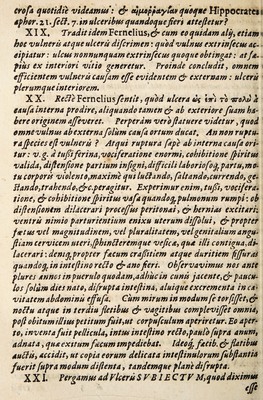 crosa quotidie videamus: & αἱμοῤῥαγίας quoque Hippocrates
aphor. 21. sect. 7. in ulceribus quandoque fieri attestetur?
XIX. Tradit idem Fernelius, & cum eo quidam alij, etiam
hoc vulneris atque ulceris discrimen: quod vulnus extrinsecus ac-
cipiatur: ulcus nonnunquam extrinsecus quoque obtingat: at sæ-
pius ex interiori vitio generetur. Proinde concludit, omnem
efficientem vulneris causam esse evidentem & externam: ulceris
plerumque interiorem.
XX. Rectè Fernelius sentit, quòd ulcera ὡς ἐπὶ τὸ πολὺ à
causa interna prodire, aliquando tamen & ab exteriore suam ha-
bere originem asseveret. Perperàm verò statuere videtur, quod
omne vulnus ab externa solùm causa ortum ducat. An non ruptu-
ra species est vulneris? Atqui ruptura sæpè ab interna causa ori-
tur: v.g. à tussi ferina, vociferatione enormi, cohibitione spiritus
valida, distensione partium insigni, difficili laboriosoq́; partu, mo-
tu corporis violento, maximè qui luctando, saltando, currendo, ge-
stando, trahendo, & c. peragitur. Experimur enim, tussi, vociferatio-
ne, & cohibitione spiritus vasa quandoq́; pulmonum rumpi: ob
distensionem dilacerari processus peritonæi, & herniæ excitari:
ventris nimio parturientium nixu uterum dissolvi, & propter
fœtus vel magnitudinem, vel pluralitatem, vel genitalium angu-
stiam cervicem uteri, sphincteremque vesicæ, quæ illi contigua, di-
lacerari: demq́; propter facem crassitiem atque duritiem fissuras
quandoq́; in intestino recto & ano fieri. Observavimus nos ante
plures annos in puerulo quodam, adhuc in cunis jacente, & pauci-
los solùm dies nato, disrupta intestina, aluique excrementa in ca-
vitatem abdominis effusa. Cum mirum in modum se torsisset, &
noctu atque in terdiu fletibus & vagitibus complevisset omnia,
post obitum illius petitum fuit, ut corpusculum aperiretur. Eo aper-
to, inventa fuit pellicula, intus intestino recto, paulò supra anum,
adnata, quæ exitum fæcum impediebat. Ideoq́; fœtib, & flatibus
auctis, accidit, ut copia eorum delicata intestinulorum substantia
fuerit supra modum distenta, tandemque planè disrupta.
XXI. Pergamus ad Ulceris SUBIECTUM, quod diximus
esse